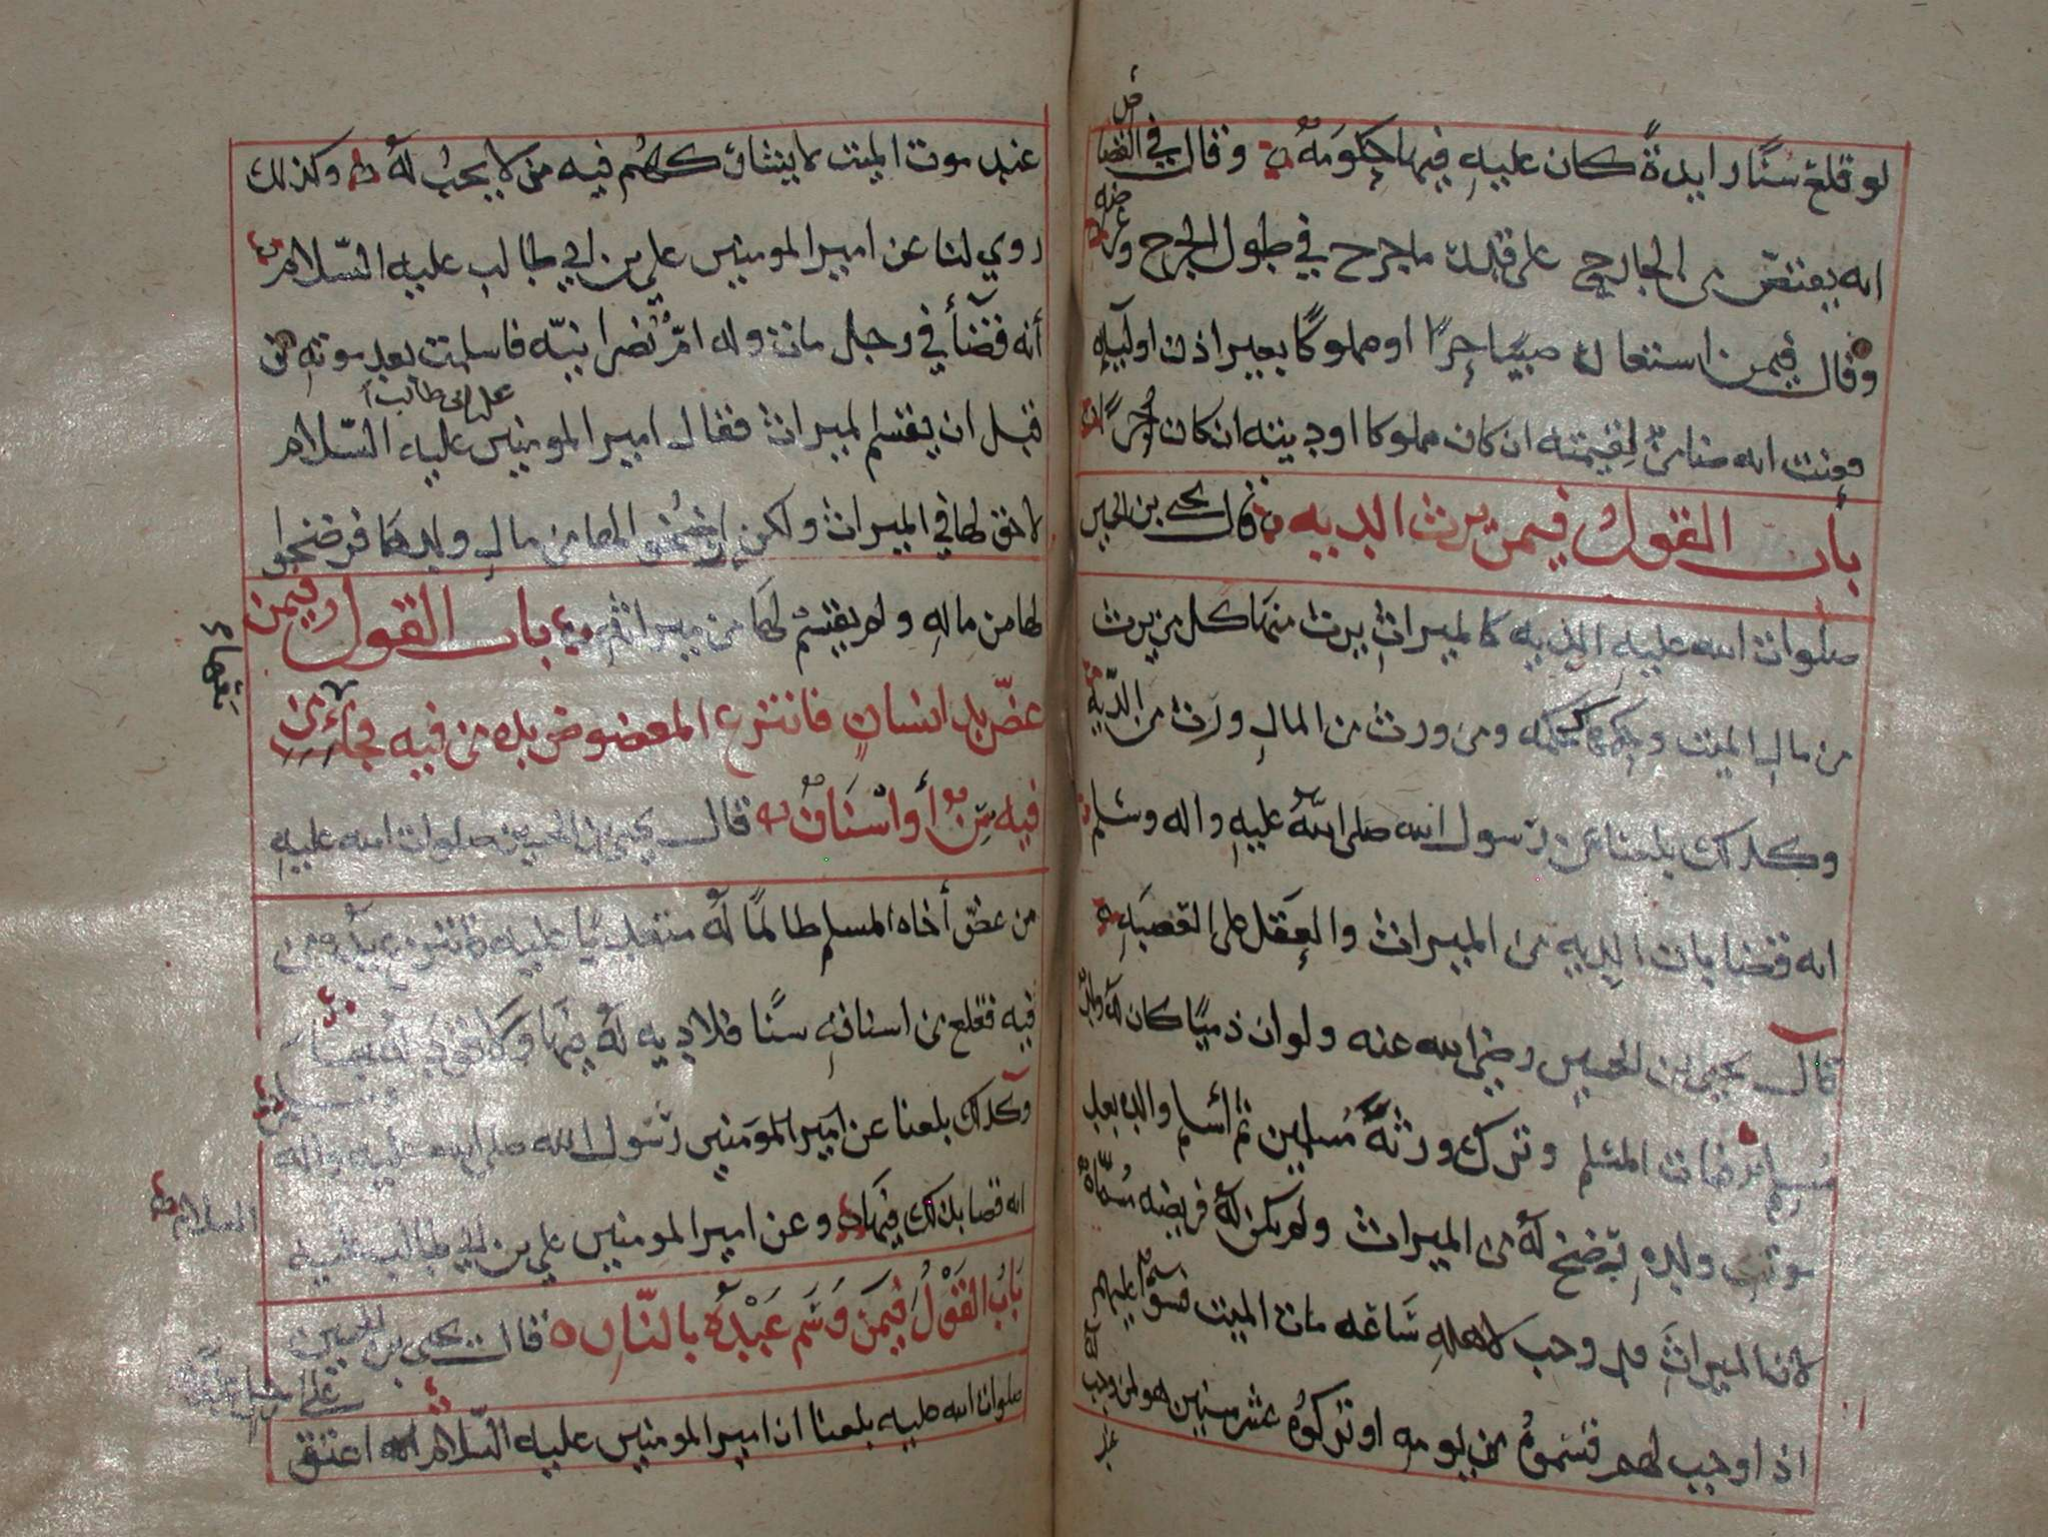 لو قلع سنًا زايدة كان عليه فيها حكومه وقال في القصاص
انه يقتص من الجارح على قدر ما جرح في طول الجرح وعرضه
وقال فيمن استعان صبيًا حرًا او مملوكًا بغير اذن اوليآيه
فعنت انه ضامن لقيمته ان كان مملوكا او ديته ان كان حرًا
باب القول فيمن يرث الديه قال يحيى بن الحسين
صلوات الله عليه الديه كالميراث يرث منها كل من يرث
من مال الميت وحكمها كحكمه ومن ورث من المال ورث من الديه
وكذلك بلغنا عن رسول الله صلى الله عليه واله وسلم
انه قضا بان الديه من الميراث والعقل على العصبه
قال يحيى بن الحسين رضي الله عنه ولو ان ذميًا كان له ولد
مسلم فمات المسلم وترك ورثة مسلمين ثم أسلم والده بعد
موت ولده رضخ له من الميراث ولم يكن له فريضه مسماة
لان الميراث قد وجب لاهله ساعه مات الميت فسوآ عليهم
اذ اوجب لهم قسموه من يومه او تركوه عشر سنين هو لمن وجب
عند
عند موت الميت لا يشاركهم فيه من لا يجب له وكذلك
روي لنا عن امير المومنين علي بن ابي طالب عليه السلام
أنه قضأ في رجل مات وله ام نصرانيه فاسلمت بعد موته من
قبل ان يقسم الميراث فقال امير المومنين علي بن ابي طالب عليه السلام
لا حق لها في الميراث ولكن ارضخوا لها من مال ولدها فرضخوا
لها من ماله ولم يقسم لها من ميراثه باب القول فيمن
عض يد انسان فانتزع المعضوض يده من فيه فجآءت من
فيه سن أو اسنان قال يحيى بن الحسين صلوات الله عليه
من عض أخاه المسلم ظالمًا له متعديًا عليه فانتزع يده من
فيه فقلع من اسنانه سنًا فلا ديه له فيها
وكذلك بلغنا عن امير المومنين رسول الله صلى الله عليه واله
انه قضا بذلك فيها وعن امير المومنين علي بن ابي طالب عليه
السلام
باب القول فيمن وسم عبده بالنار قال يحيى بن الحسين
صلوات الله عليه بلغنا ان امير المومنين عليه السلام انه اعتق